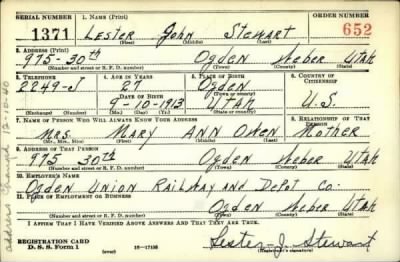 SERIAL NUMBER 1. NAME (Print) ORDER NUMBER
1371 LESTER John STEWART 652
(First) (Middle) (Last)
2. ADDRESS (Print)
975-30th Ogden Weber Utah
(Number and street or R. F. D. number) (Town) (County) (State)
3. TELEPHONE 4. AGE IN YEARS 5. PLACE OF BIRTH 6. COUNTRY OF CITIZENSHIP
2249-J 27 Ogden
DATE OF BIRTH
9-10-1913 Utah U.S.
(Exchange) (No.) (Mo.) (Day) (Yr.) (State or country)
7. NAME OF PERSON WHO WILL ALWAYS KNOW YOUR ADDRESS 8. RELATIONSHIP OF THAT PERSON
Mrs. Mary Ann Owen Mother
(Mr., Mrs., Miss) (First) (Middle) (Last)
9. ADDRESS OF THAT PERSON
975 30th Ogden Weber Utah
(Number and street or R. F. D. number) (Town) (County) (State)
10. EMPLOYER'S NAME
Ogden Union Railway and Depot Co.
11. PLACE OF EMPLOYMENT OR BUSINESS
Ogden Weber Utah
(Number and street or R. F. D. number) (Town) (County) (State)
I AFFIRM THAT I HAVE VERIFIED ABOVE ANSWERS AND THAT THEY ARE TRUE.
REGISTRATION CARD
D. S. S. Form 1 16-17105 Lester J. Stewart
(Registrant's signature)
address changed 12-10-40